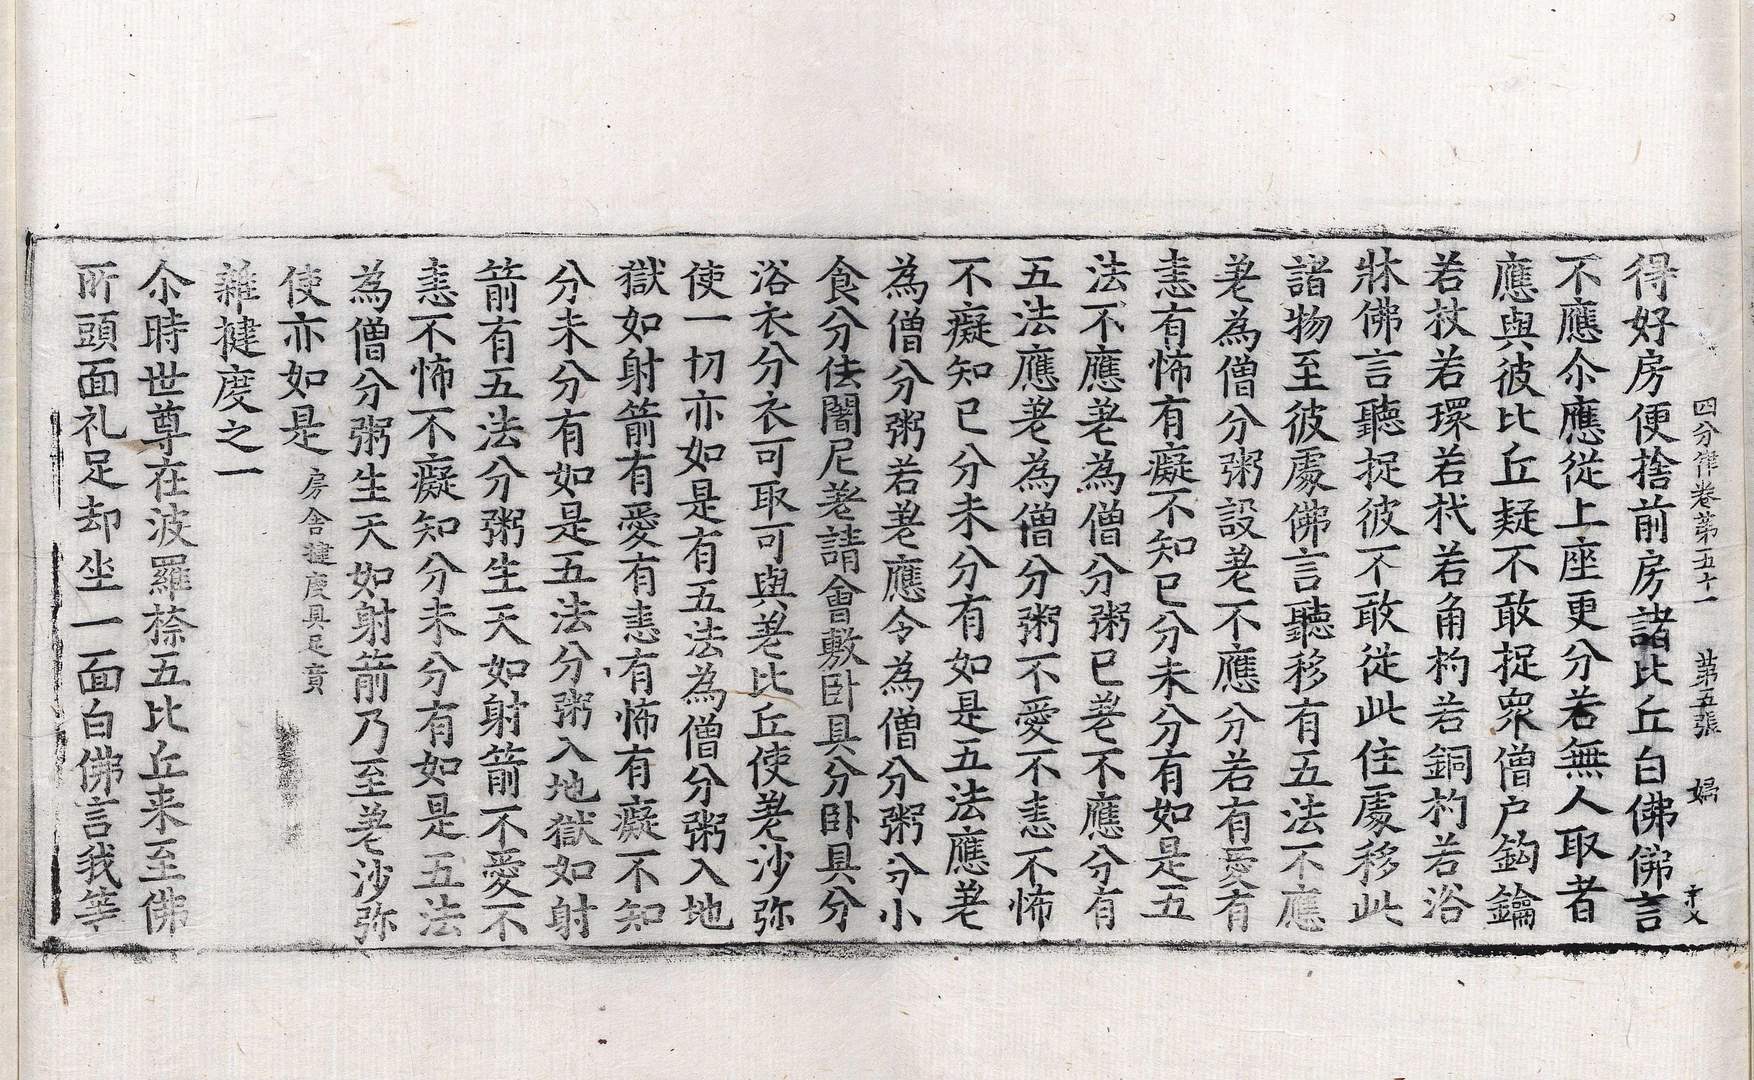 四分律卷第五十一　第五張　婦
得好房便捨前房諸比丘白佛佛言
不應尒應從上座更分若無人取者
應與彼比丘疑不敢捉眾僧户鈎鑰
若杖若環若杙若角杓若銅杓若浴
牀佛言聽捉彼不敢從此住處移此
諸物至彼處佛言聽移有五法不應
差為僧分粥設差不應分若有愛有
恚有怖有癡不知已分未分有如是五
法不應差為僧分粥已差不應分有
五法應差為僧分粥不愛不恚不怖
不癡知已分未分有如是五法應差
為僧分粥若差應令為僧分粥分小
食分佉闍尼差請會敷卧具分卧具分
浴衣分衣可取可與差比丘使差沙弥
使一切亦如是有五法為僧分粥入地
獄如射箭有愛有恚有怖有癡不知
分未分有如是五法分粥入地獄如射
箭有五法分粥生天如射箭不愛不
恚不怖不癡知分未分有如是五法
為僧分粥生天如射箭乃至差沙弥
使亦如是房舍揵度具足竟
雜揵度之一
尒時世尊在波羅㮈五比丘来至佛
所頭面礼足却坐一面白佛言我等